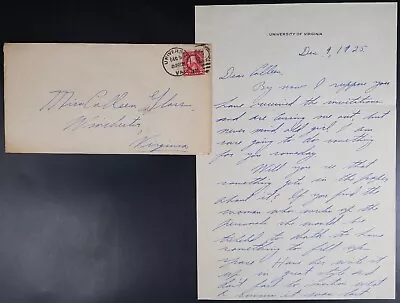 UNIVERSITY
VA.
Miss Colleen
Winchester
Virginia
UNIVERSITY OF VIRGINIA
Dec 9, 1925
Dear Colleen,
By now I suppose you
have received the invitations
and are cussing me out, but
never mind old girl I am
sure going to do something
for you someday
Will you see that
something gets in the paper
about it? If you find the
woman who writes up the
personals she would be
tickled to death to have
something to fill up
space. Have her write it
up in great style and
don't fail to mention what